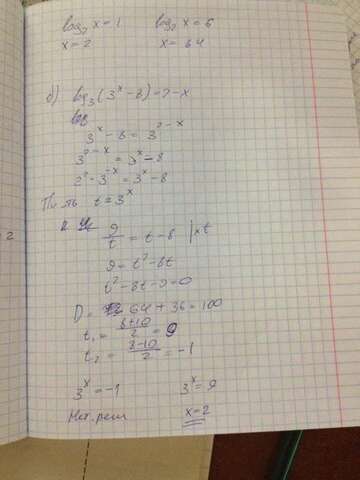 log₂ x = 1 log₂ x = 6
x = 2 x = 64
б) log₃(3ˣ - 8) = 2 - x
3ˣ - 8 = 3²⁻ˣ
3²⁻ˣ = 3ˣ - 8
3² · 3⁻ˣ = 3ˣ - 8
Пусть t = 3ˣ
9/t = t - 8 |×t
9 = t² - 8t
t² - 8t - 9 = 0
D = 64 + 36 = 100
t₁ = (8+10)/2 = 9
t₂ = (8-10)/2 = -1
3ˣ = -1 3ˣ = 9
Нет. реш x = 2